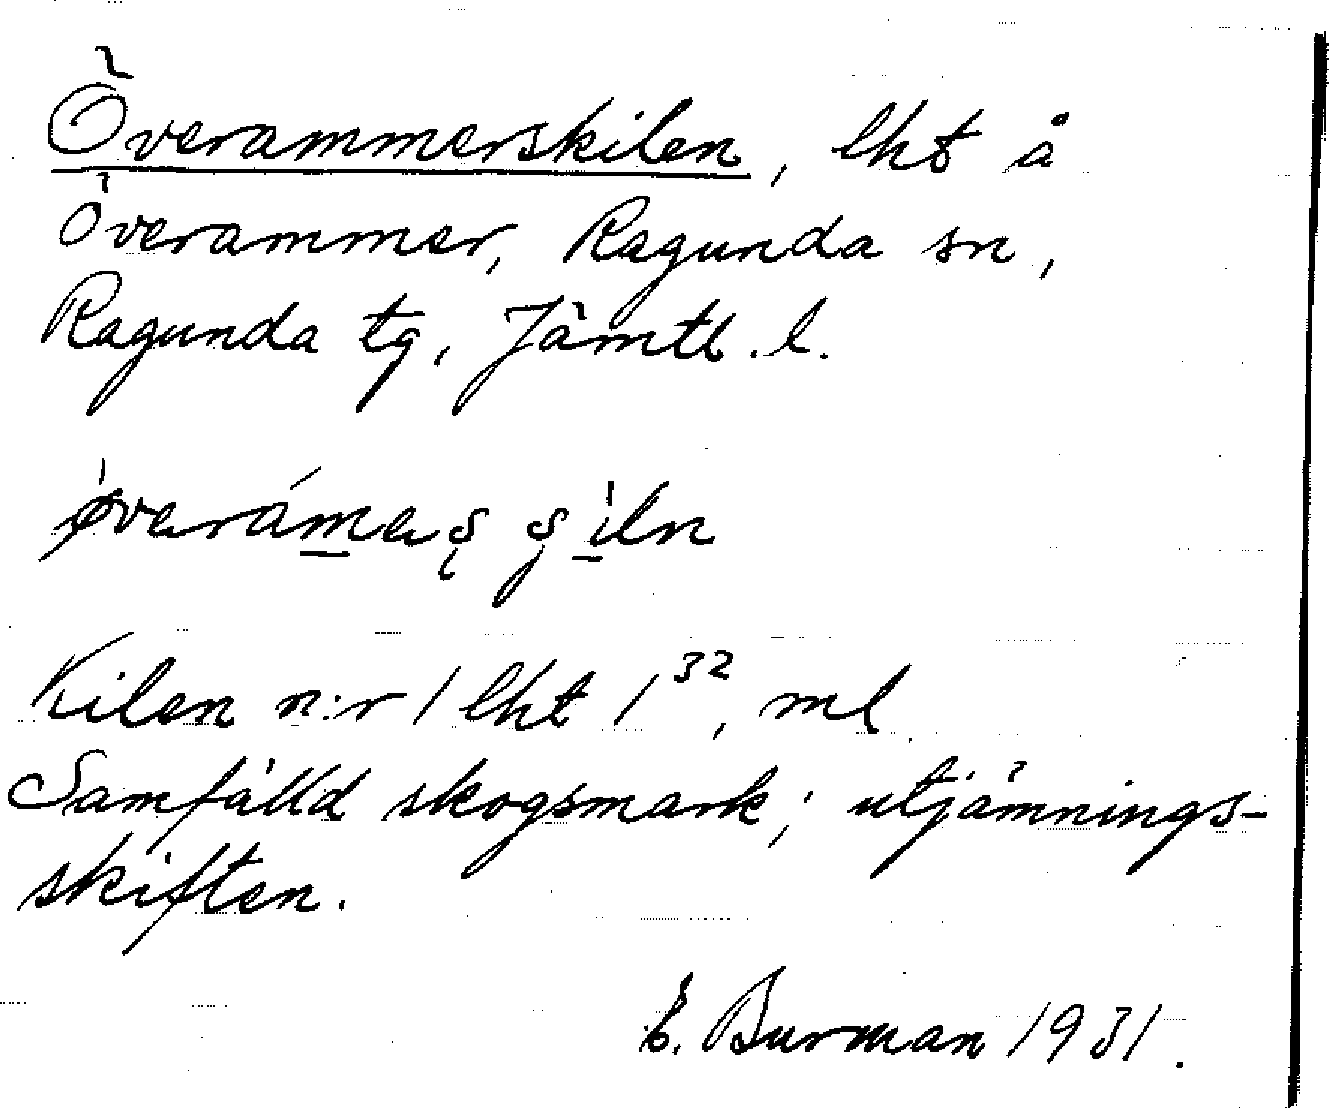 Överammerskilen, lht å
Överammer, Ragunda sn,
Ragunda tg, Jämtl. l.
Kilen n:r 1 lht 1 32, ml
Samfälld skogsmark; utjämnings-
skiften.
E. Burman 1931.